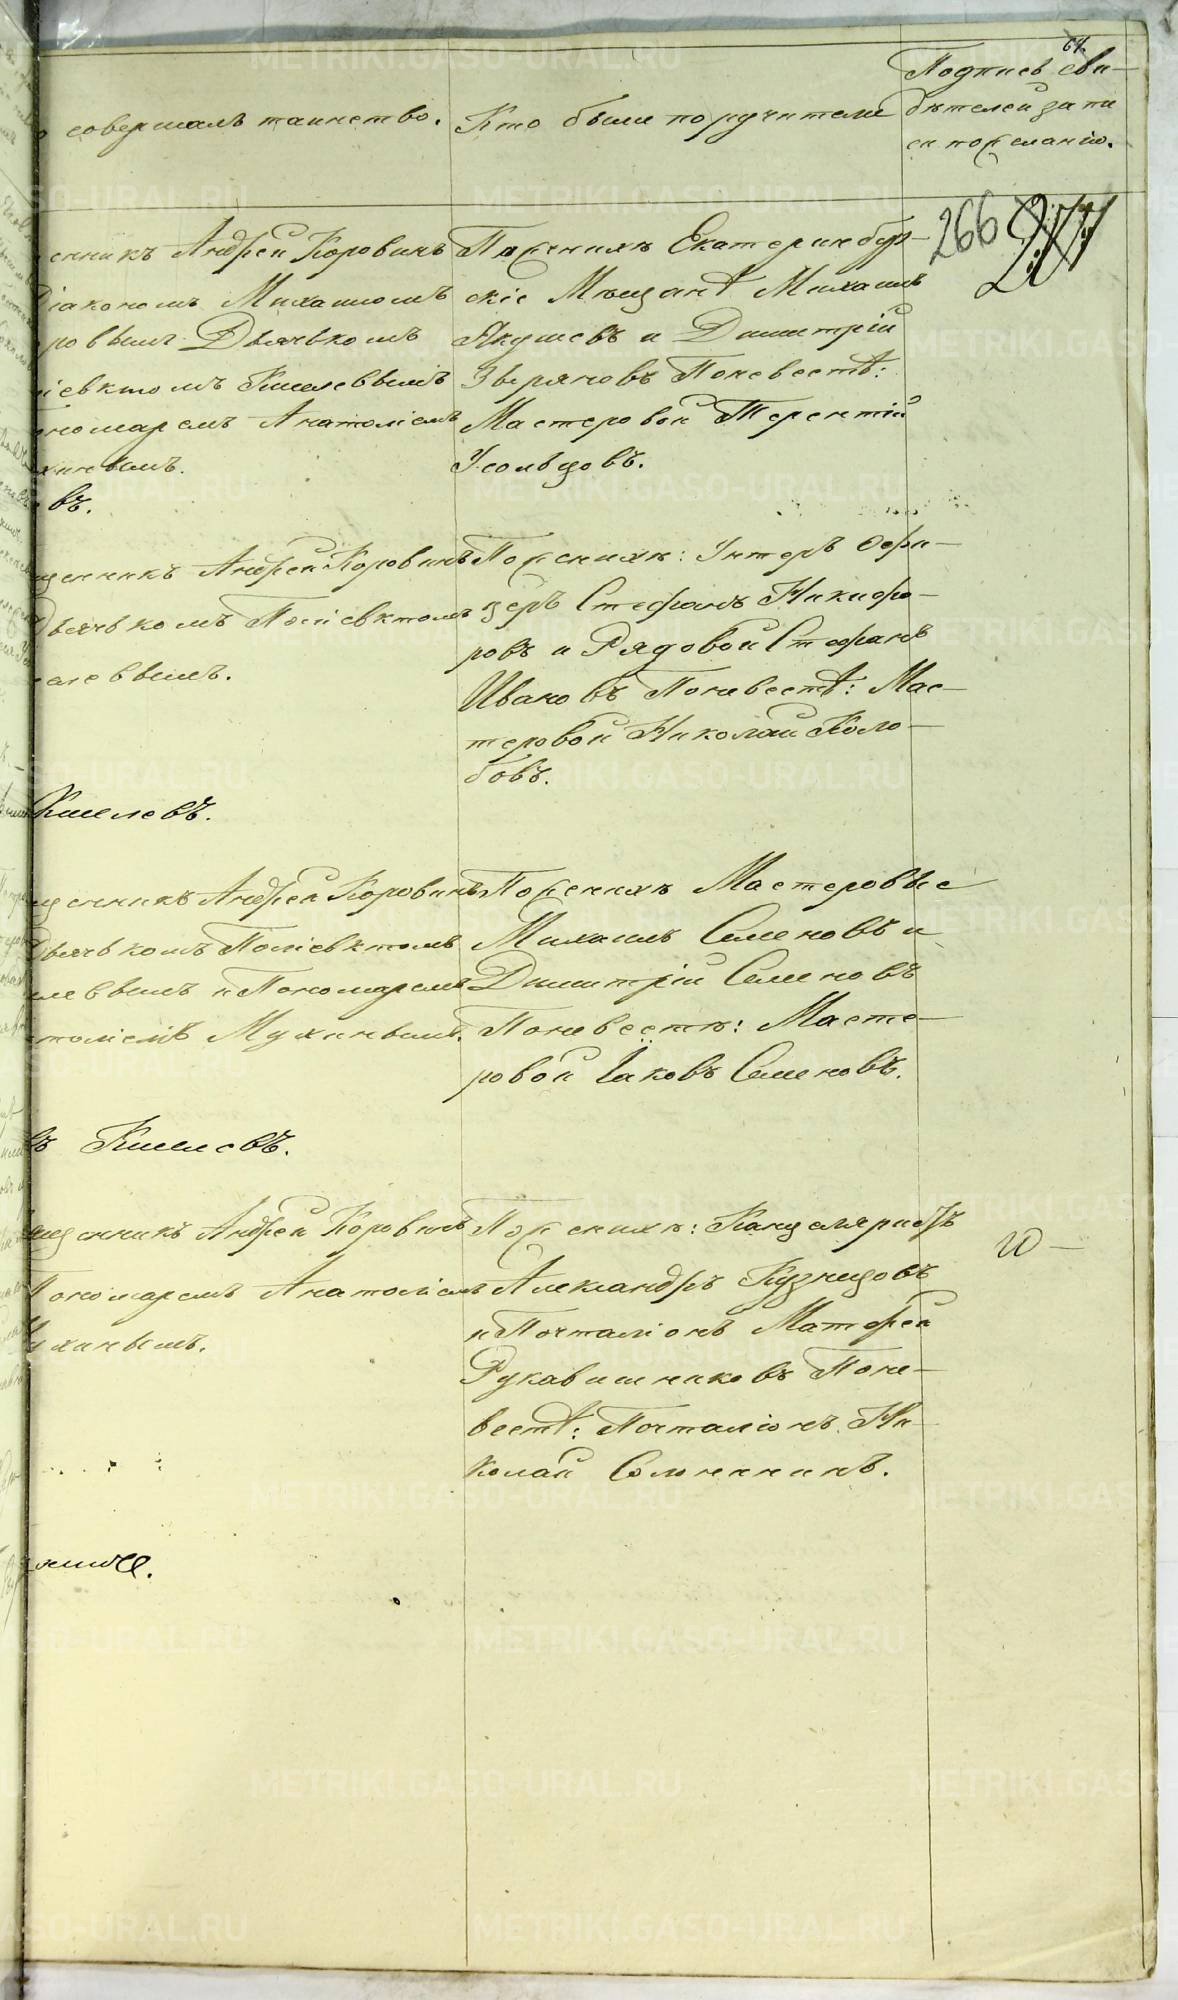 64.
о совершалъ таинство.
Кто были поручители
Подпись сви-
дѣтелей запи
си по желанію.
266 277
енникъ Андрей Коровинъ
Діакономъ Михаиломъ
ровымъ Дьячькомъ
іевктомъ Киселевымъ
ономаремъ Анатоліемъ
хинымъ.
въ.
Поженихѣ Екатеринбур-
скіе Мѣщанѣ Михаилъ
Якушевъ и Димитрій
Звѣряновъ Поневестѣ:
Мастеровой Терентій
Усольцовъ.
щенникъ Андрей Коровинъ
Дьячькомъ Поліевктомъ
селевымъ.
Поженихѣ: Унтеръ Офи-
церъ Стефанъ Никифо-
ровъ и Рядовой Стефанъ
Ивановъ Поневестѣ: Мас-
теровой Николай Коло-
бовъ.
Киселевъ.
щенникъ Андрей Коровинъ
Дьячькомъ Поліевктомъ
елевымъ и Пономаремъ
толіемъ Мухинымъ.
Поженихѣ Мастеровые
Михаилъ Семеновъ и
Димитрій Семеновъ
Поневестѣ: Масте-
ровой Іаковъ Семеновъ.
въ Киселевъ.
ященникъ Андрей Коровинъ
Пономаремъ Анатоліемъ
ухинымъ.
Поженихѣ: Канцеляристъ
Александръ Кузнецовъ
и Почталіонъ Матфей
Рукавишниковъ Поне-
вестѣ: Почталіонъ Ни
колай Солонининъ.